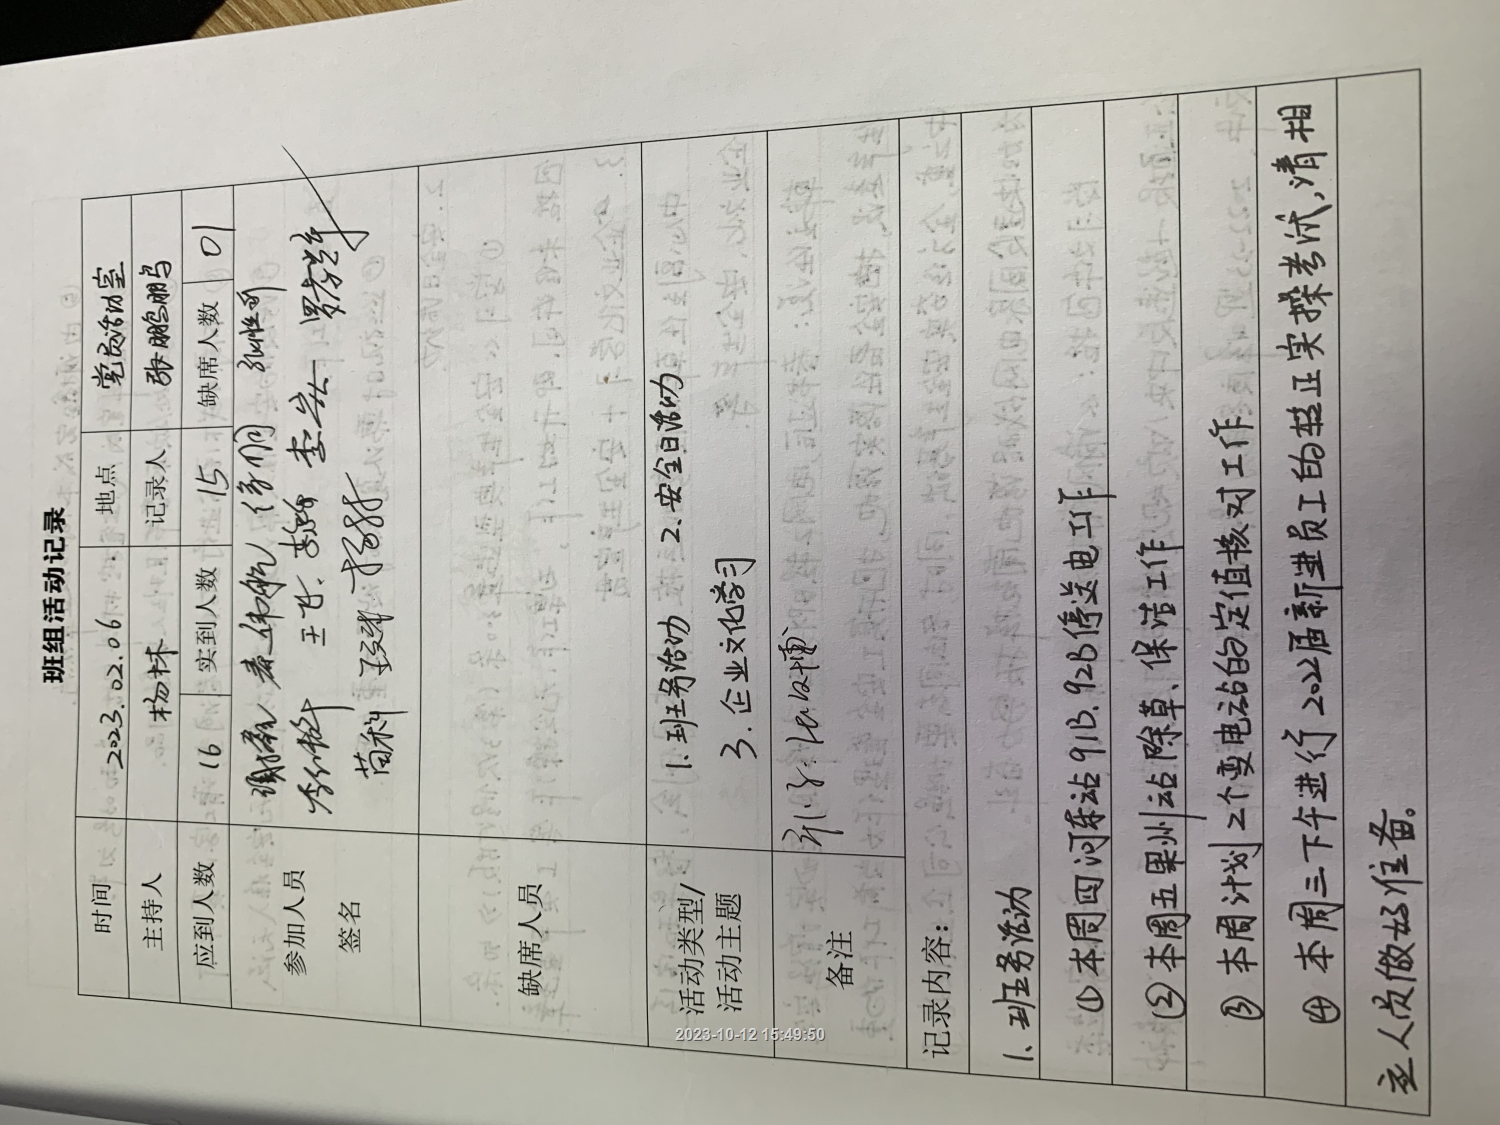 班组活动记录
时间 2023.02.06 地点 党员活动室
主持人 杨林 记录人 张鹏鹏
应到人数 16 实到人数 15 缺席人数 01
参加人员
签名
王飞
苗科
缺席人员
活动类型/
活动主题
1.班务活动 2.安全日活动
3.企业文化学习
备注
记录内容:
1、班务活动
①本周四河东站91B、92B停送电工作
②本周五果州站除草、保洁工作
③本周计划2个变电站的定值核对工作
④本周三下午进行2022届新进员工的转正实操考试,请相
人员做好准备。
2023-10-12 15:49:50